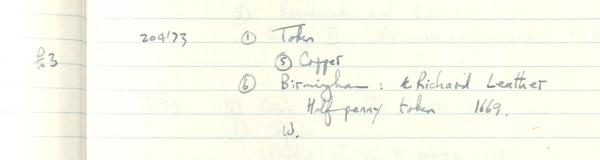 £3 204'73 ① Token
⑤ Copper
⑥ Birmingham : Richard Leather
Halfpenny token 1669.
W.